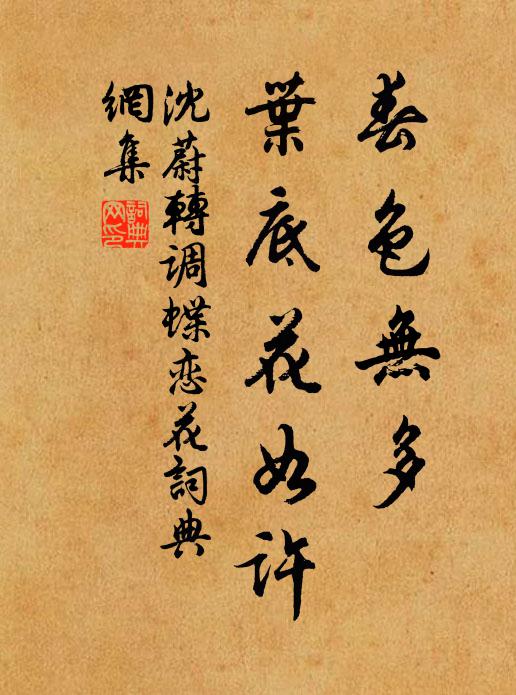 春色無多
葉底花如許
沈蔚轉調蝶恋花詞典
網集
詞典
网印